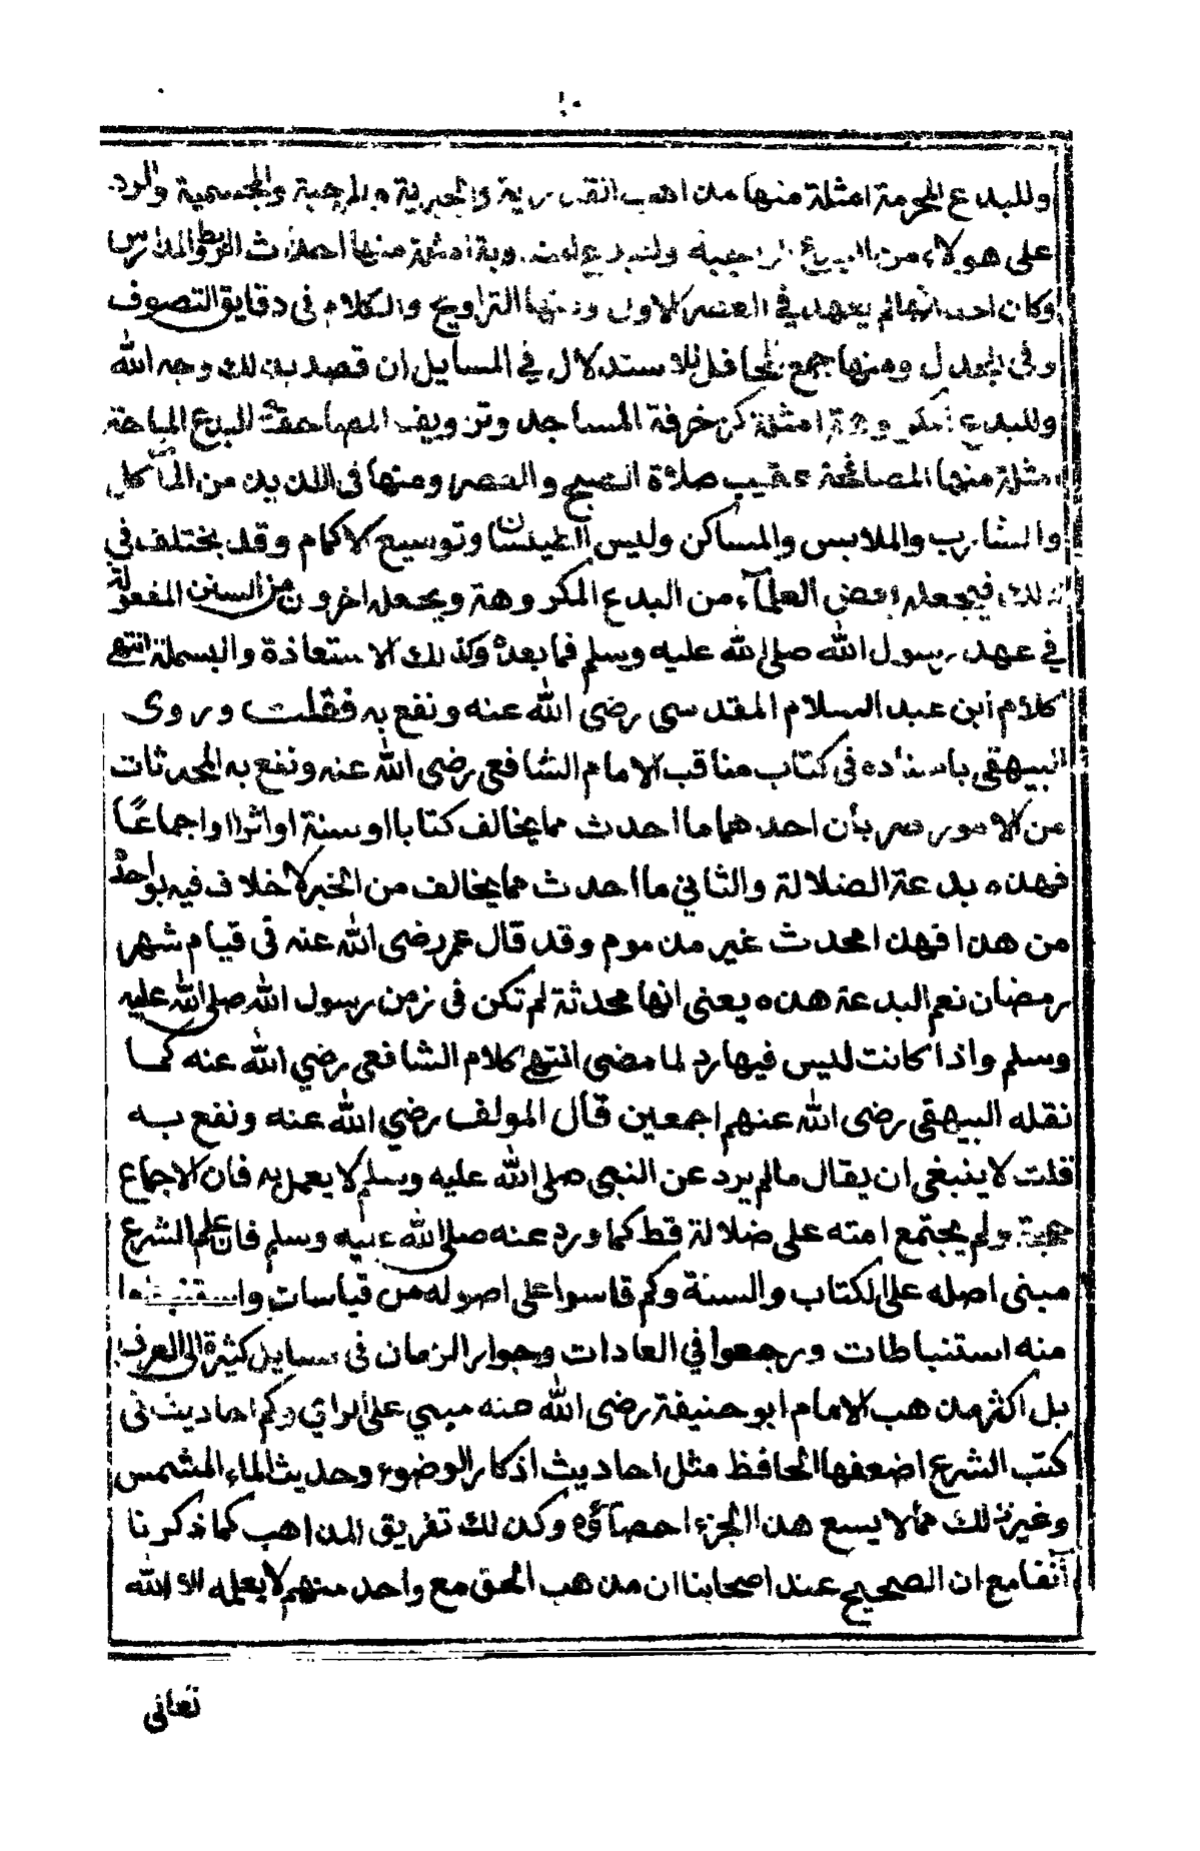 ١٠
وللبدع المحرمة امثلة منها مذاهب القدرية والجبرية والمرجية والمجسمية والرد
على هولاء من البدع الواجبة وللبدع المندوبة امثلة منها احداث الربط والمدارس
وكان احسانها لم يعهد في العصر الاول ومنها التراويح والكلام في دقايق التصوف
وفى الجدل ومنها جمع المحافل للاستدلال في المسايل ان قصد بذلك وجه الله
وللبدع المكروهة امثلة كزخرفة المساجد وتزويف المصاحف وللبدع المباحة
امثلة منها المصافحة عقيب صلاة الصبح والعصر ومنها فى اللذيذ من المآكل
والمشارب والملابس والمساكن وليس الطيلسان وتوسيع الاكمام وقد يختلف في
ذلك فيجعله بعض العلمآء من البدع المكروهة ويجعله اخرون من السنن المفعولة
في عهد رسول الله صلى الله عليه وسلم فما بعده وكذلك الاستعاذة والبسملة انتهى
كلام ابن عبد السلام المقدسي رضي الله عنه ونفع به فقلت وروى
البيهقى باسناده فى كتاب مناقب الامام الشافعى رضى الله عنه ونفع به المحدثات
من الامور ضربان احدهما ما احدث مما يخالف كتابا او سنة او اثرا او اجماعًا
فهذه بدعة الضلالة والثاني ما احدث مما يخالف من الخير لا خلاف فيه بواحد
من هذا فهذا محدث غير مذموم وقد قال عمر رضى الله عنه فى قيام شهر
رمضان نعم البدعة هذه يعنى انها محدثة لم تكن فى زمن رسول الله صلى الله عليه
وسلم واذا كانت ليس فيها رد لما مضى انتهى كلام الشافعى رضي الله عنه كما
نقله البيهقى رضى الله عنهم اجمعين قال المولف رضي الله عنه ونفع به
قلت لا ينبغى ان يقال ما لم يرد عن النبى صلى الله عليه وسلم لا يعمل به فان الاجماع
حجة ولم يجتمع امته على ضلالة قط كما ورد عنه صلى الله عليه وسلم فان علم الشرع
مبنى اصله على الكتاب والسنة وكم قاسوا على اصوله من قياسات واستنبطوا
منه استنباطات ورجعوا في العادات وجوار الزمان فى مسايل كثيرة الى العرف
بل اكثر مذهب الامام ابو حنيفة رضى الله عنه مبني على الراي وكم احاديث فى
كتب الشرع اضعفها الحافظ مثل احاديث اذكار الوضوء وحديث الماء المشمس
وغير ذلك مما لا يسع هذا الجزء احصآؤه وكذلك تفريق المذاهب كما ذكرنا
آنفا مع ان الصحيح عند اصحابنا ان مذهب الحق مع واحد منهم لا يعلمه الا الله
تعالى